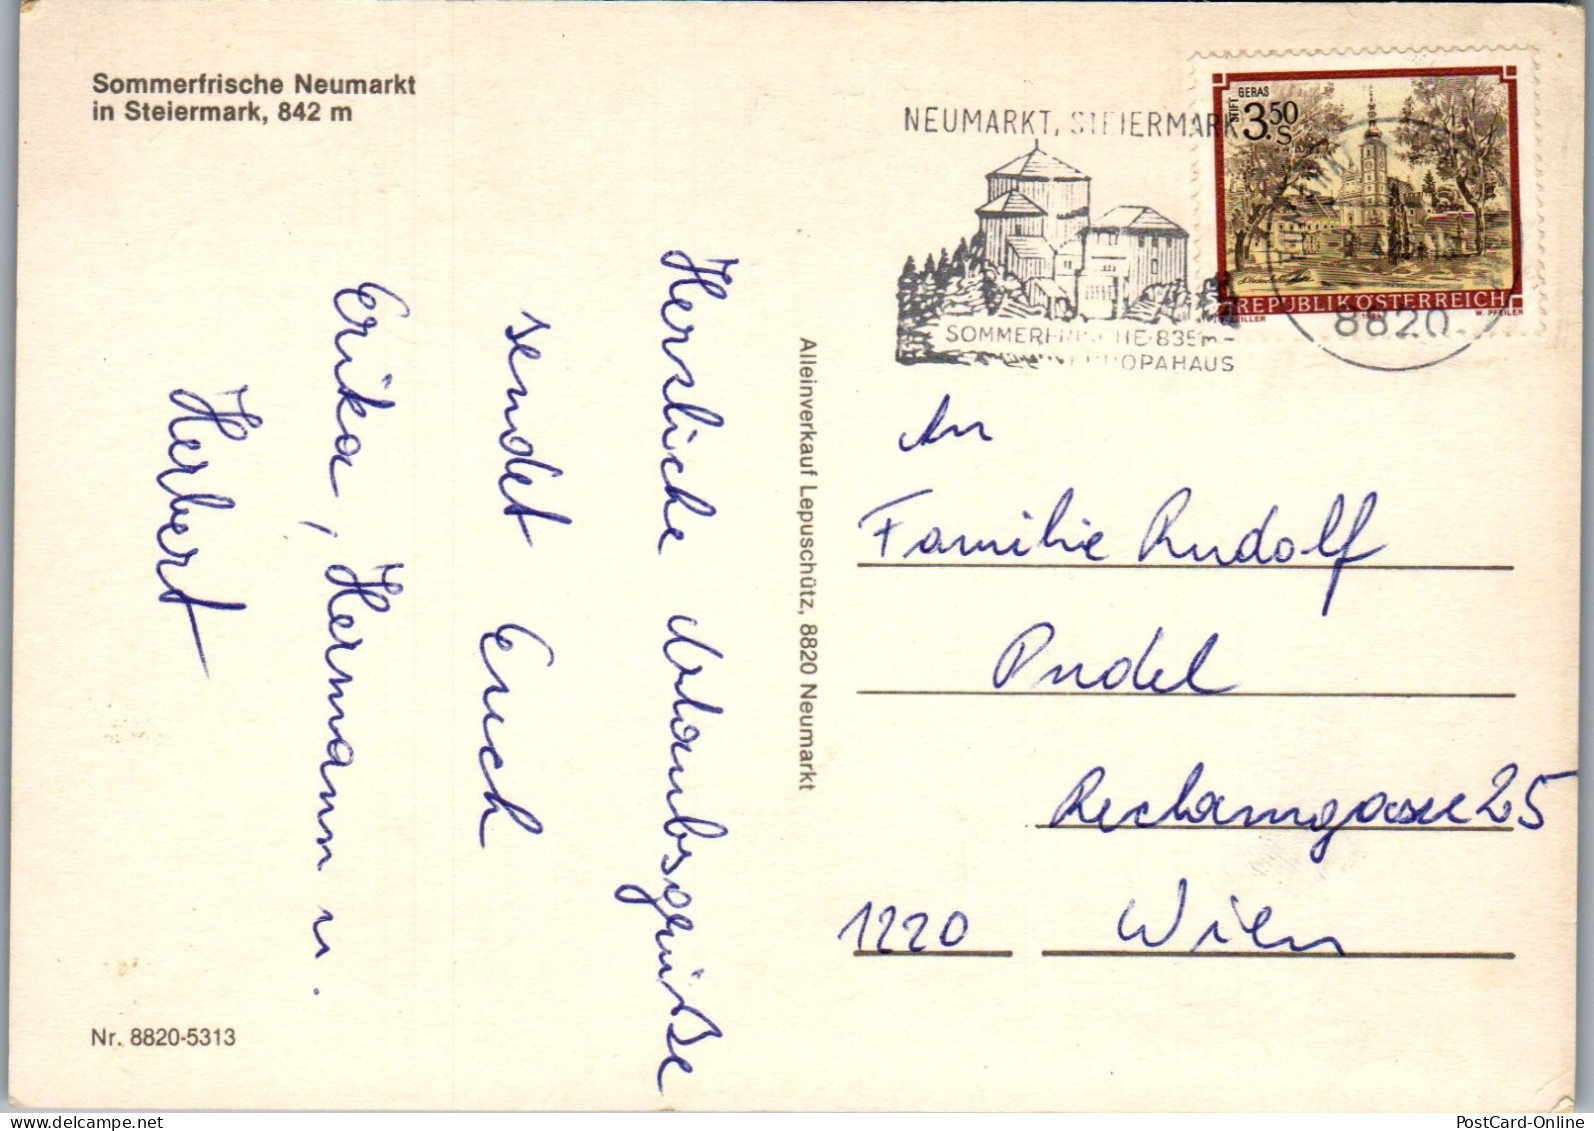 Sommerfrische Neumarkt
in Steiermark, 842 m
NEUMARKT, STEIERMARK
SOMMERFRISCHE 835m-
EUROPAHAUS
STIFT GERAS
3.50 S
REPUBLIK ÖSTERREICH
W. PFEILER
8820
Herzliche Urlaubsgrüße
sendet Euch
Erika, Hermann u.
Herbert
Alleinverkauf Lepuschütz, 8820 Neumarkt
An
Familie Rudolf
Pudel
Rechamgasse 25
1220 Wien
Nr. 8820-5313
www.delcampe.net
PostCard-Online